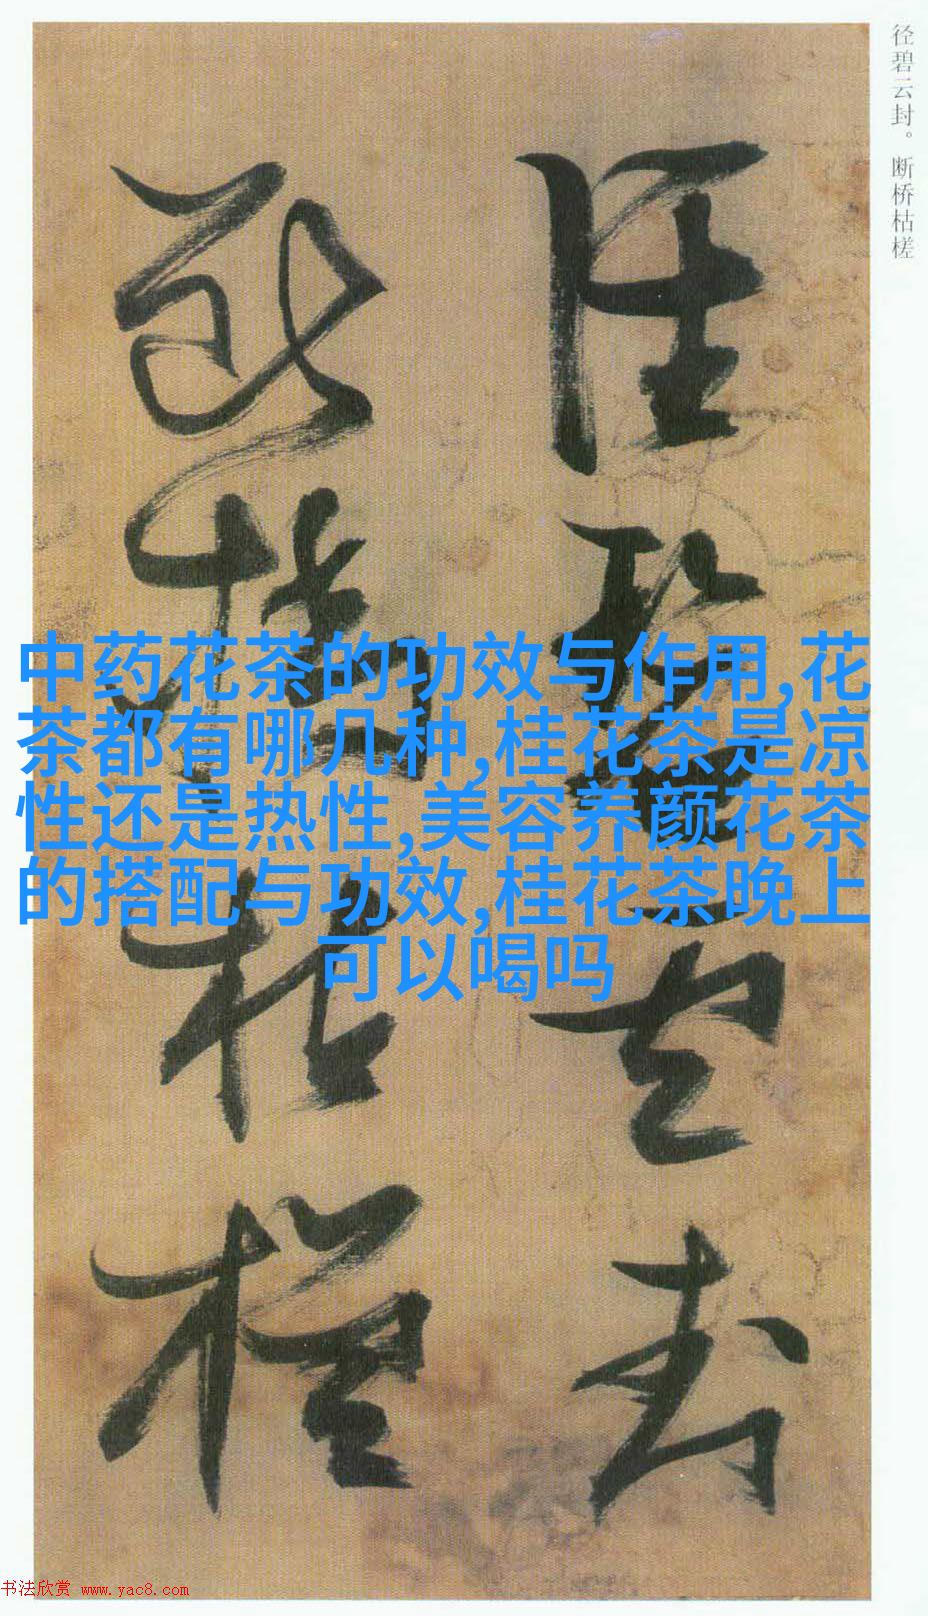 径碧云封。断桥枯槎
径碧云封
断桥枯槎
中药花茶的功效与作用,花
茶都有哪几种,桂花茶是凉
性还是热性,美容养颜花茶
的搭配与功效,桂花茶晚上
可以喝吗
书法欣赏 www.yac8.com